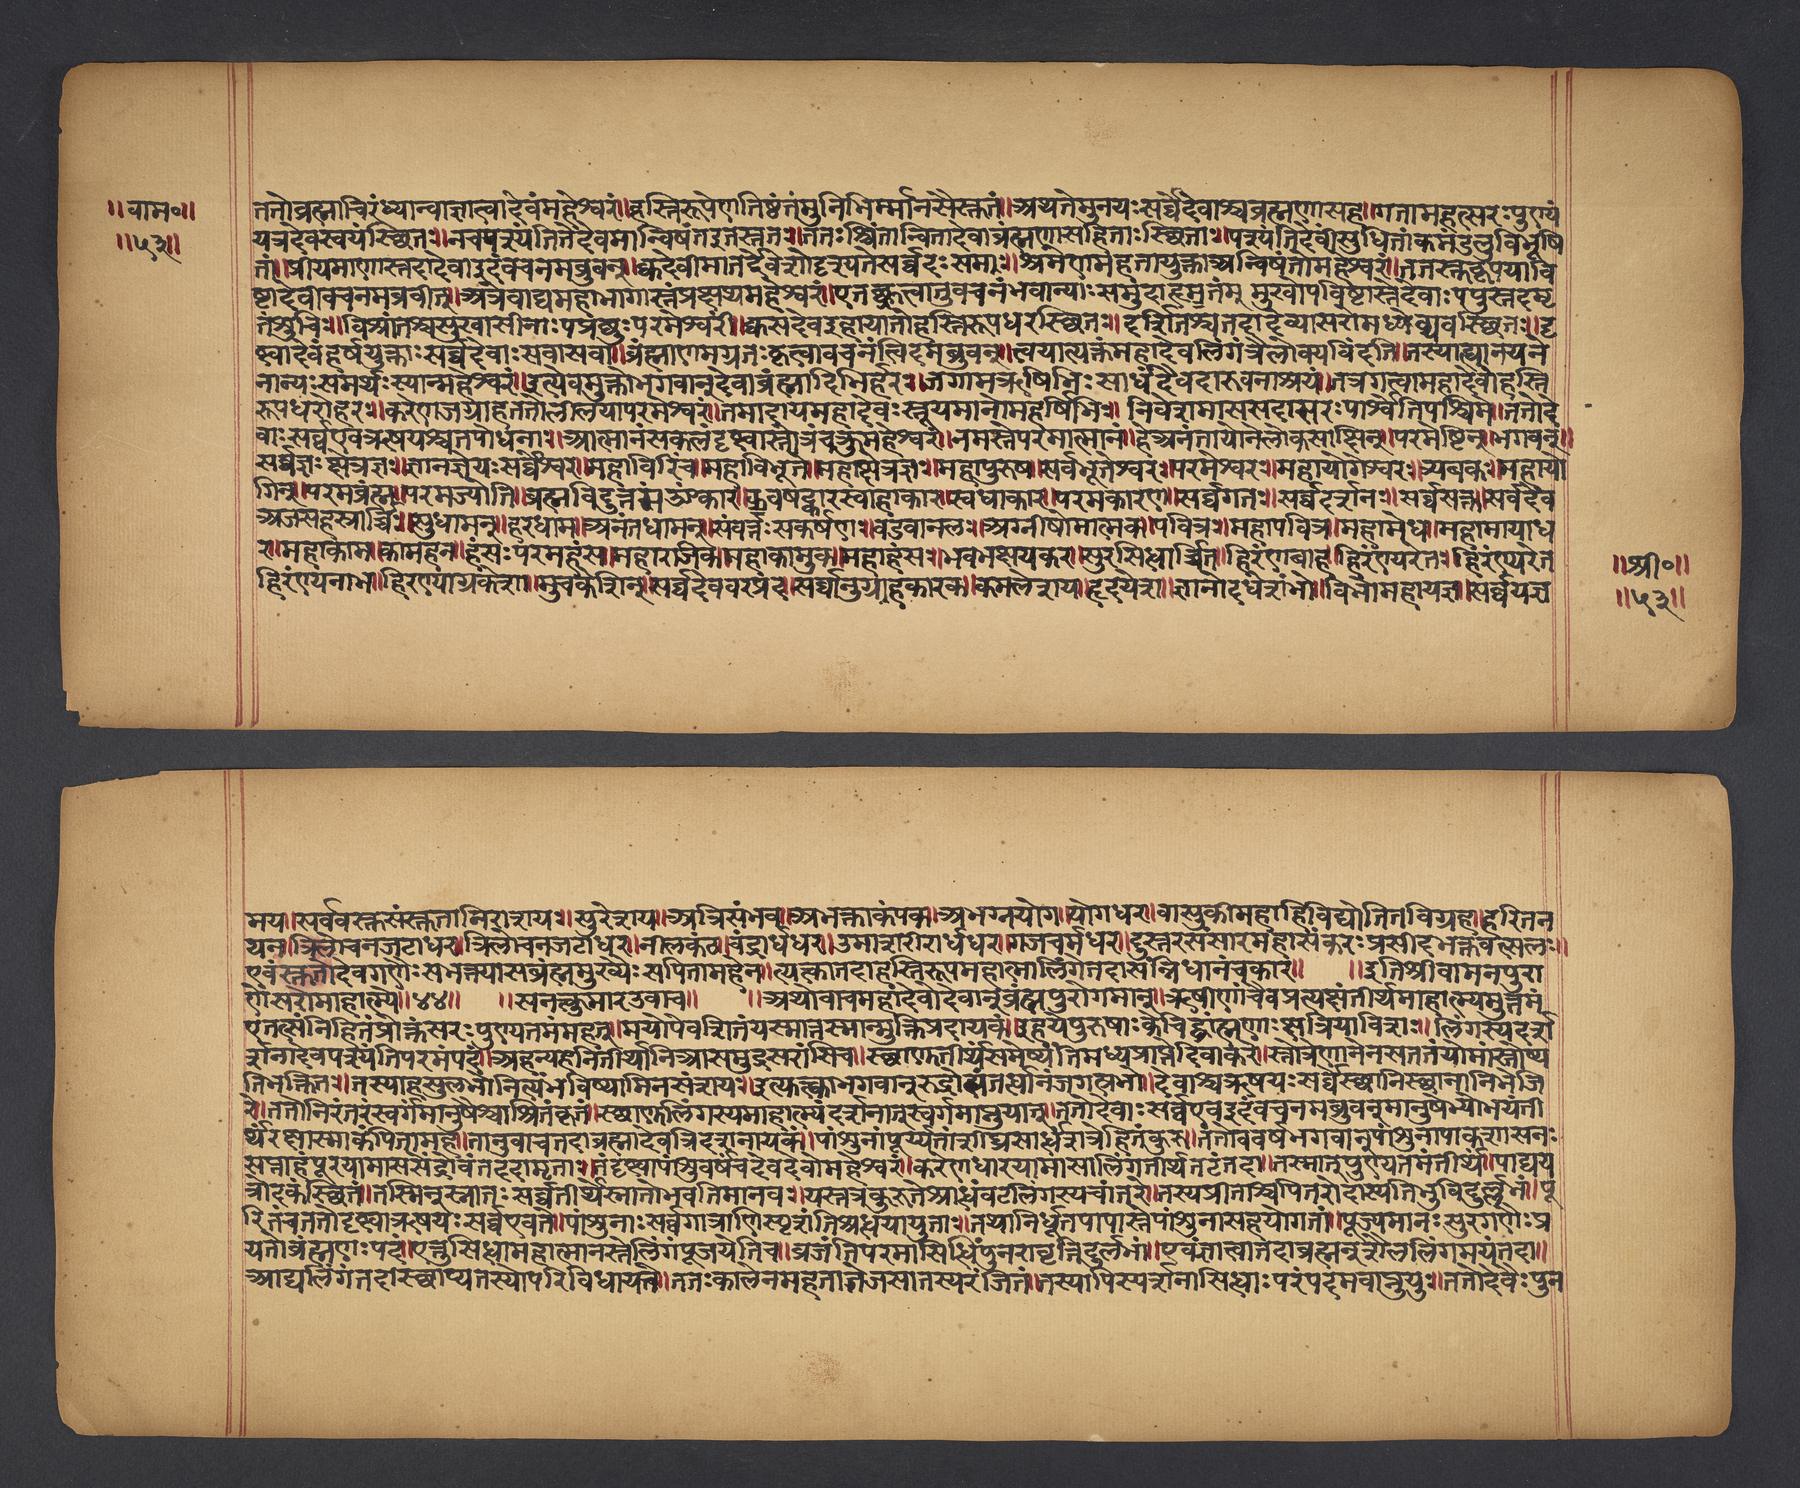 ॥वाम॰॥
॥५३॥
ततोब्रह्माचिरंध्यात्वाज्ञात्वादेवंमहेश्वरं॥हस्तिरूपेणतिष्ठंतंमुनिभिर्म्मानसैस्तुतं॥अथतेमुनयःसर्व्वेदेवाश्चब्रह्मणासह॥गतामहत्सरःपुण्यं
यत्रदेवःस्वयंस्थितः॥नचपश्यंतितंदेवमान्विषंतइतस्ततः॥ततःश्चिंतान्वितादेवाब्रह्मणासहिताःस्थिताः॥पश्यंतिदेवींसुधितांकमंडलुविभूषि
तां॥प्रीयमाणास्तदादेवाइदंवचनमब्रुवन्॥क्वदेवीमातर्देवेशोदृश्यतेसर्व्वदःसमाः॥श्रमेणमहतायुक्ताअन्विषंतोमहेश्वरं॥ततस्तत्कृपयावि
ष्टादेवीवचनमब्रवीत्॥अत्रैवाद्यमहाभागास्तंप्रक्ष्यथमहेश्वरं॥एतच्छ्रुत्वातुवचनंभवान्याःसमुदाहृतंसु सुखोपविष्टास्तेदेवाःपपुस्तदमृ
तंशुचिः॥विश्रांतश्चसुखासीनाःपप्रछुःपरमेश्वरीं॥क्वसदेवइहायातोहस्तिरूपधरस्थितः॥दर्शितश्चतदादेव्यासरोमध्येव्यवस्थितः॥दृ
ष्ट्वादेवंहर्षयुक्ताःसर्व्वेदेवाःसवासवाः॥ब्रह्माणमग्रतःकृत्वावचनंत्विदमब्रुवन्॥त्वयात्यक्तंमहादेवलिंगंत्रैलोक्यवंदितं॥तस्याद्यानयने
नान्यःसमर्थःस्यान्महेश्वरं॥इत्येवमुक्तोभगवान्देवोब्रह्मादिभिर्हरः॥जगामऋषिभिःसार्धंदेवदारुवनाश्रयं॥तत्रगत्वामहादेवोहस्ति
रूपधरोहरः॥करेणजग्राहततोलीलयापरमेश्वरं॥तमादायमहादेवःस्तूयमानोमहर्षिभिः॥ निवेशयामाससदासरःपार्श्वेतिपश्चिमे॥ततोदे
वाःसर्व्वएवऋषयश्चतपोधनाः॥आत्मानंसकलंदृष्ट्वास्तोत्रंचक्रुर्महेश्वरे॥नमस्तेपरमात्मानं॥हेअनंतायोनेलोकसाक्षिन्॥परमेष्टिन्॥भगवन्॥
सर्व्वज्ञःक्षेत्रज्ञः॥ज्ञानज्ञेयः॥सर्व्वेश्वर॥महाविरिंच॥महाविभूते॥महाक्षेत्रज्ञः॥महापुरुष॥सर्वभूतेश्वर॥परमेश्वरः॥महायोगेश्वरः॥त्र्यंबकः॥महायो
गिन्॥परमब्रह्म॥परमज्योति॥ब्रह्मविदुत्तम॥ॐकार॥वषट्कारस्वाहाकार॥स्वधाकार॥परमकारण॥सर्व्वगतः॥सर्व्वदर्शनः॥सर्व्वसक्त॥सर्वदेव
अजसहस्रार्च्चिः॥सुधामन्॥हरधाम॥अनंतधामन्॥संवर्त्तःसंकर्षणः॥वडवानलः॥अग्नीषोमात्मक॥पवित्रः॥महापवित्र॥महामेध॥महामायाध
र॥महाकाम॥कामहन॥हंसः॥परमहंस॥महाराजिक॥महाकामुक॥महाहंसः॥भवभक्षयकर॥सुरसिधार्च्चित॥हिरण्यवाह॥हिरण्यरेतः॥हिरण्यरेत
हिरण्यनाभ॥हिरण्याग्रकेश॥मुंचकेशिन्॥सर्व्वदेववरप्रद॥सर्व्वानुग्राहकारक॥कमलेशय॥हृदयेश॥ज्ञानोदधेशंभो॥विभोमहायज्ञ॥सर्व्वयज्ञ
॥श्री॰॥
॥५३॥
मय॥सर्ववस्त्रसंस्कृतानिराश्रयः॥सुरेशय॥अत्रिसंभव॥अभक्ताकंपक॥अभग्नयोग॥योगधर॥वासुकीमहाहिविद्योतितविग्रह॥हरितन
यन॥त्रिलोचनजटाधर॥त्रिलोचनजटाधर॥नीलकंठ॥चंद्रार्धधर॥उमाशरीरार्धधर॥गजचर्मधर॥दुस्तरसंसारमहासंकरः॥प्रसीदभक्तवत्सलः॥
एवंस्तुतोदेवगणैःसभक्त्यासब्रह्ममुख्यैःसपितामहेन॥त्यक्त्वातदाहस्तिरूपंमहात्मालिंगेतदासंनिधानंचकार॥ ॥इतिश्रीवामनपुरा
णेसरोमाहात्म्ये॥४४॥ ॥सनत्कुमारउवाच॥ ॥अथोवाचमहादेवोदेवान्ब्रह्मपुरोगमान्॥ऋषीणांचैवप्रत्यक्षंतीर्थमाहात्म्यमुत्तमं
एतत्संनिहितंप्रोक्तंसरःपुण्यतमंमहत्॥मयोपेवशितंयस्मात्तस्मान्मुक्तिप्रदायकं॥इहयेपुरुषाःकेचिद्ब्राह्मणाःक्षत्रियाविशः॥लिंगस्यदर्श
र्शनादेवपश्यंतिपरमंपदं॥अहन्यहनितीर्थानिआसमुद्रसरांसिच॥स्थाणुतीर्थंसमेष्यंतिमध्यंप्राप्तेदिवाकरे॥स्तोत्रेणानेनसततंयोमांस्तोष्य
तिभक्तितः॥तस्याहंसुलभोनित्यंभविष्यामिनसंशयः॥इत्युक्त्वाभगवान्रुद्रोह्यंतर्धानंजगत्प्रभो॥देवाश्चऋषयःसर्व्वेस्थानिस्थानानिभेजि
रे॥ततोनिरंतरंस्वर्गंमानुषैश्चाश्रितंकृतं॥स्थाणुलिंगस्यमाहात्म्यंदर्शनात्स्वर्गमाप्नुयात्॥ततोदेवाःसर्व्वएवइदंवचनमब्रुवन्मानुषेभ्योभयंती
र्थंरक्षास्माकंपितामह॥तानुवाचतदाब्रह्मादेवत्रिदशनायकं॥पांशुनांपूर्य्यतांशीघ्रंसार्धंशत्रहितंकुरु॥ततोववर्षभगवान्पांशुनापाकशासनः
सप्ताहंपूरयामाससेंद्रादेवैतदामृताः॥तंदृष्ट्वापांशुवर्षंचदेवदेवोमहेश्वरं॥करेणधारयामासलिंगंतीर्थतटंतदा॥तस्मात्पुण्यतमंतीर्थं॥पाद्यय
त्रोदकंस्थितं॥तस्मिन्स्नातःसर्व्वतीर्थस्नातोभवतिमानवः॥यस्तत्रकुरुतेश्राधंवटलिंगस्यचांतरे॥तस्यप्रीताश्चपितरोदास्यंतिभुविदुर्ल्लभां॥पू
रितंचततोदृष्ट्वाऋषयःसर्व्वएवते॥पांशुनाःसर्व्वगात्राणिस्पृशंतिश्रधयायुताः॥तथानिर्धूतपापास्तेपांशुनासहयोगतां॥पूज्यमानःसुरगणैःप्र
यतोब्रह्मणःपदं॥एनुसिधामहात्मानस्तेलिंगंपूजयंतिच॥व्रजंतिपरमांसिधिंपुनरावृत्तिदुर्लभां॥एवंज्ञात्वातदाब्रह्मन्शैललिंगमयंतदा॥
आद्यलिंगंतदास्थाप्यतस्योपरिविधायतं॥ततःकालेनमहतातेजसातस्यरंजितं॥तस्यापिस्पर्शनात्सिध्धाःपरंपदमवाप्नुयुः॥ततोदेवैःपुन